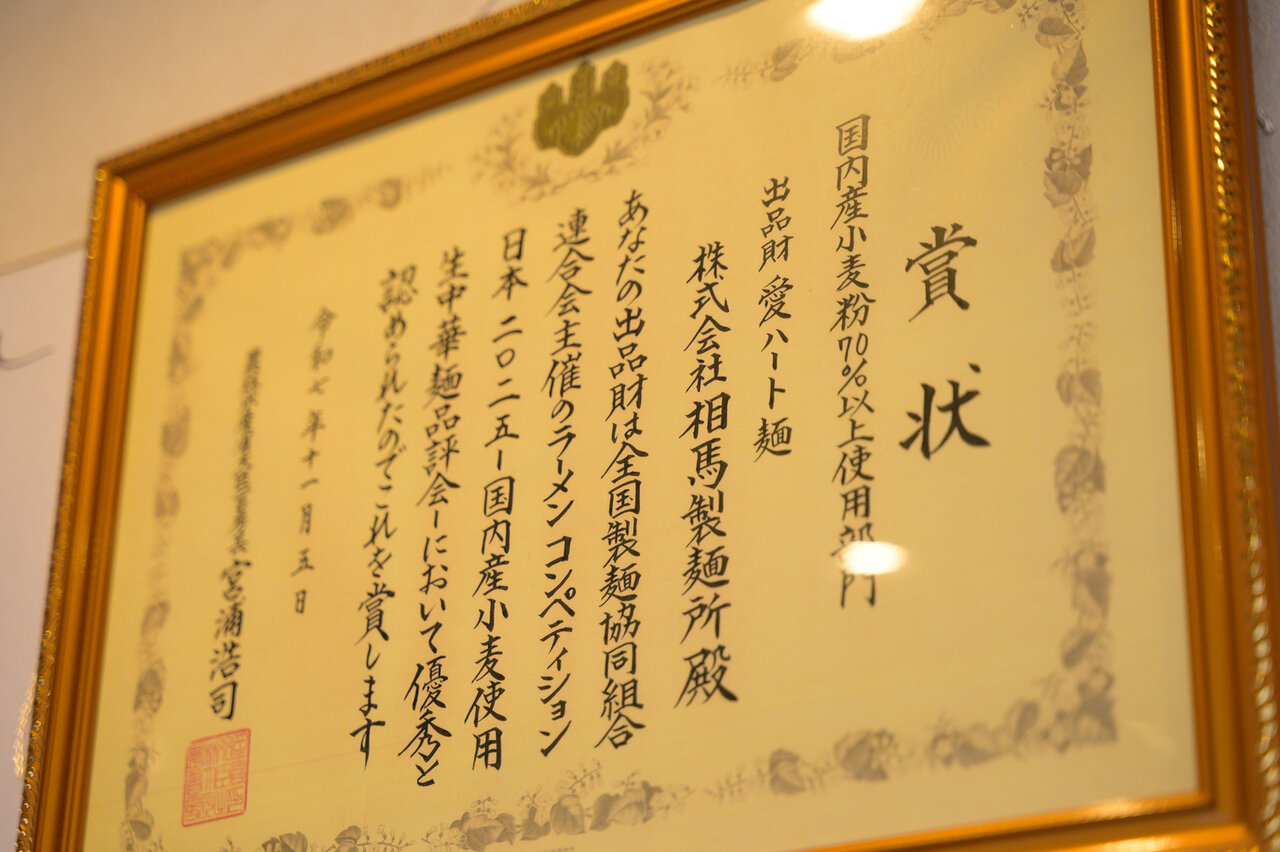 賞状
国内産小麦粉70%以上使用部門
出品財 愛ハート麺
株式会社相馬製麺所殿
あなたの出品財は全国製麺協同組合
連合会主催のラーメンコンペティション
日本二〇二五ー国内産小麦使用
生中華麺品評会ーにおいて優秀と
認められたのでこれを賞します
令和七年十一月五日
宮浦浩司